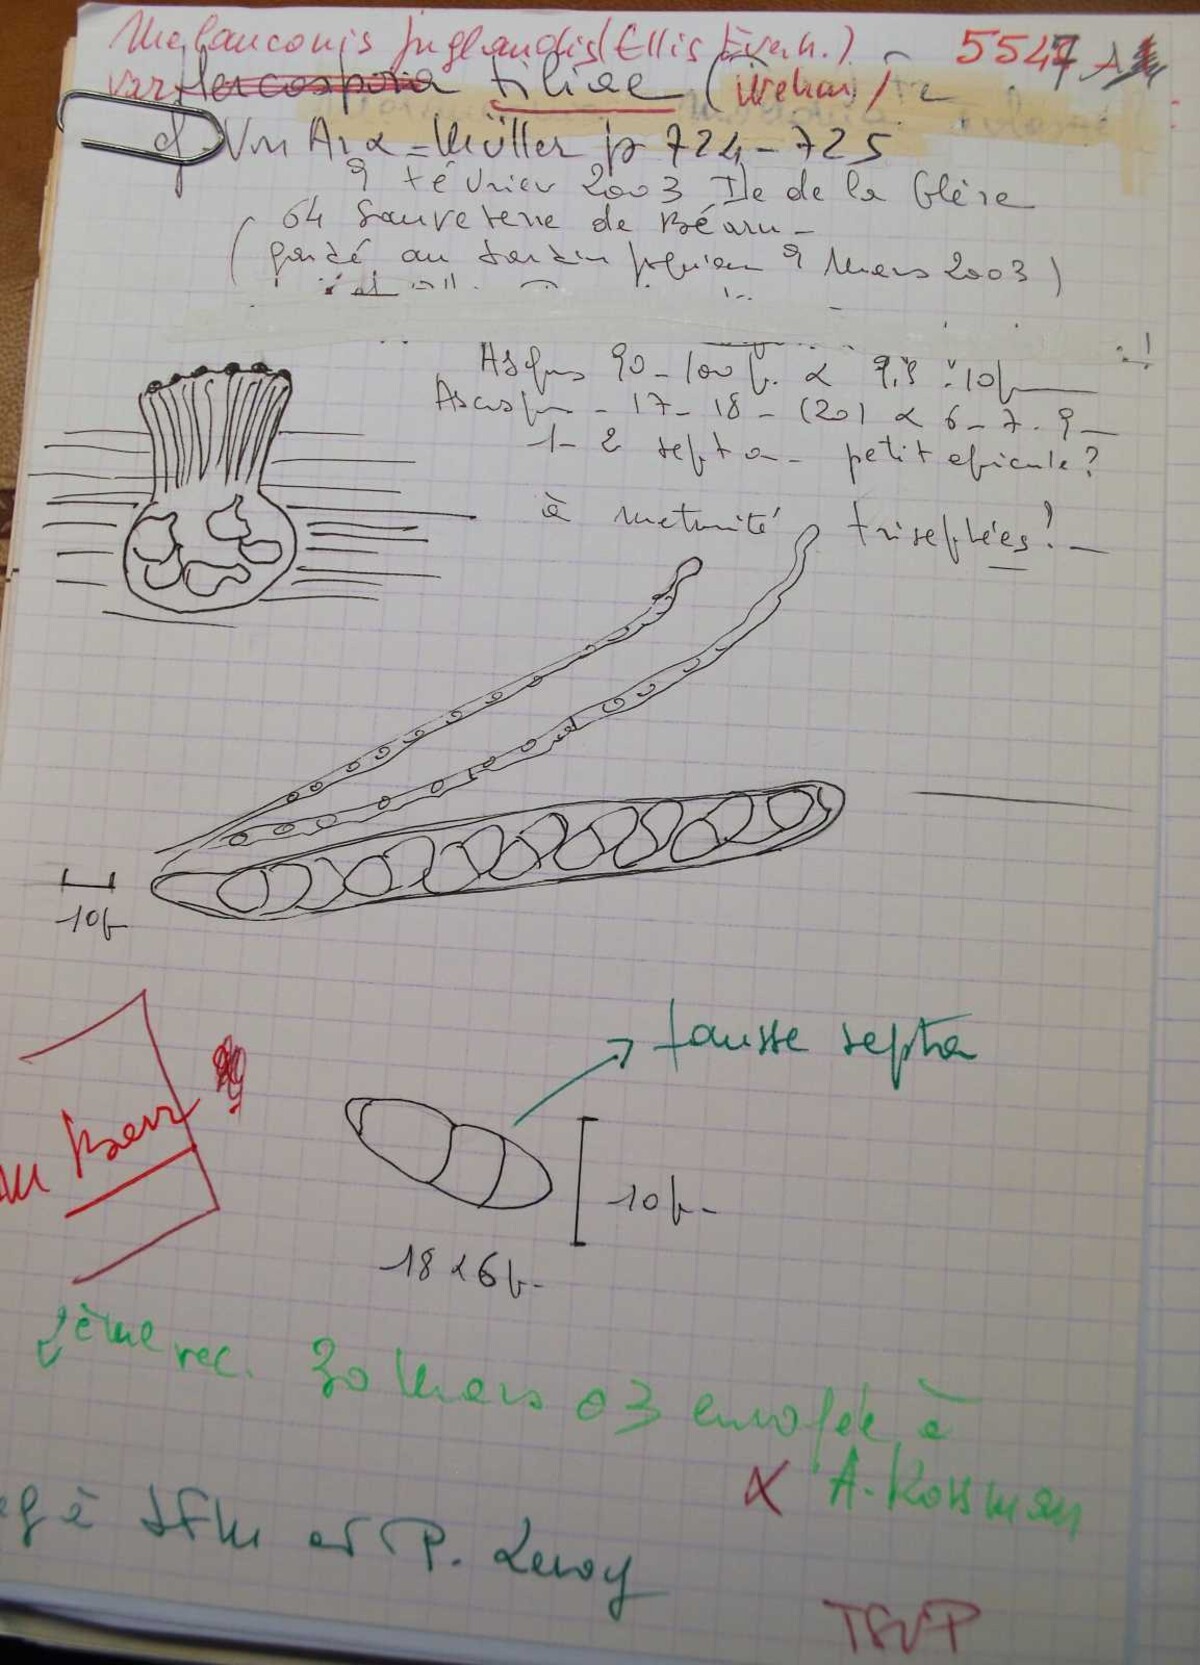 Melanconis juglandis (Ellis Everh.)
5547 A
var Hercospora tiliae (
cf Von Arx - Müller p 724 - 725
9 Février 2003 Ile de la Glère
64 Sauveterre de Béarn -
(gardé au jardin jusqu'au 9 Mars 2003)
Asques 90 - 100 µ x 9,5 : 10 µ
Ascosp - 17 - 18 - (20) x 6 - 7 - 9 -
1 - 2 septa - petit apicule ?
à maturité triseptées ! -
10 µ
fausse septa
10 µ -
18 x 6 µ -
2ème rec. 30 Mars 03 envoyée à
x A. Rossman
à JFM et P. Leroy
TSVP